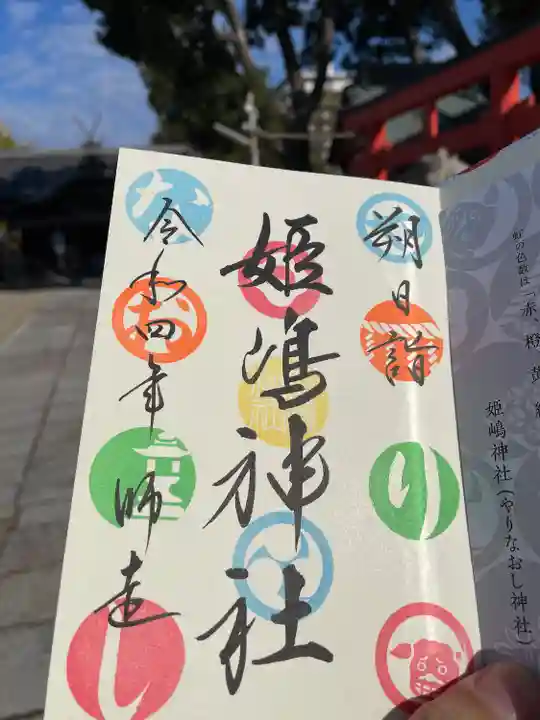 虹の色数は「赤、橙、黄、緑
姫嶋神社(やりなおし神社)
朔日詣
り
姫嶋神社
令和四年師走
お
し